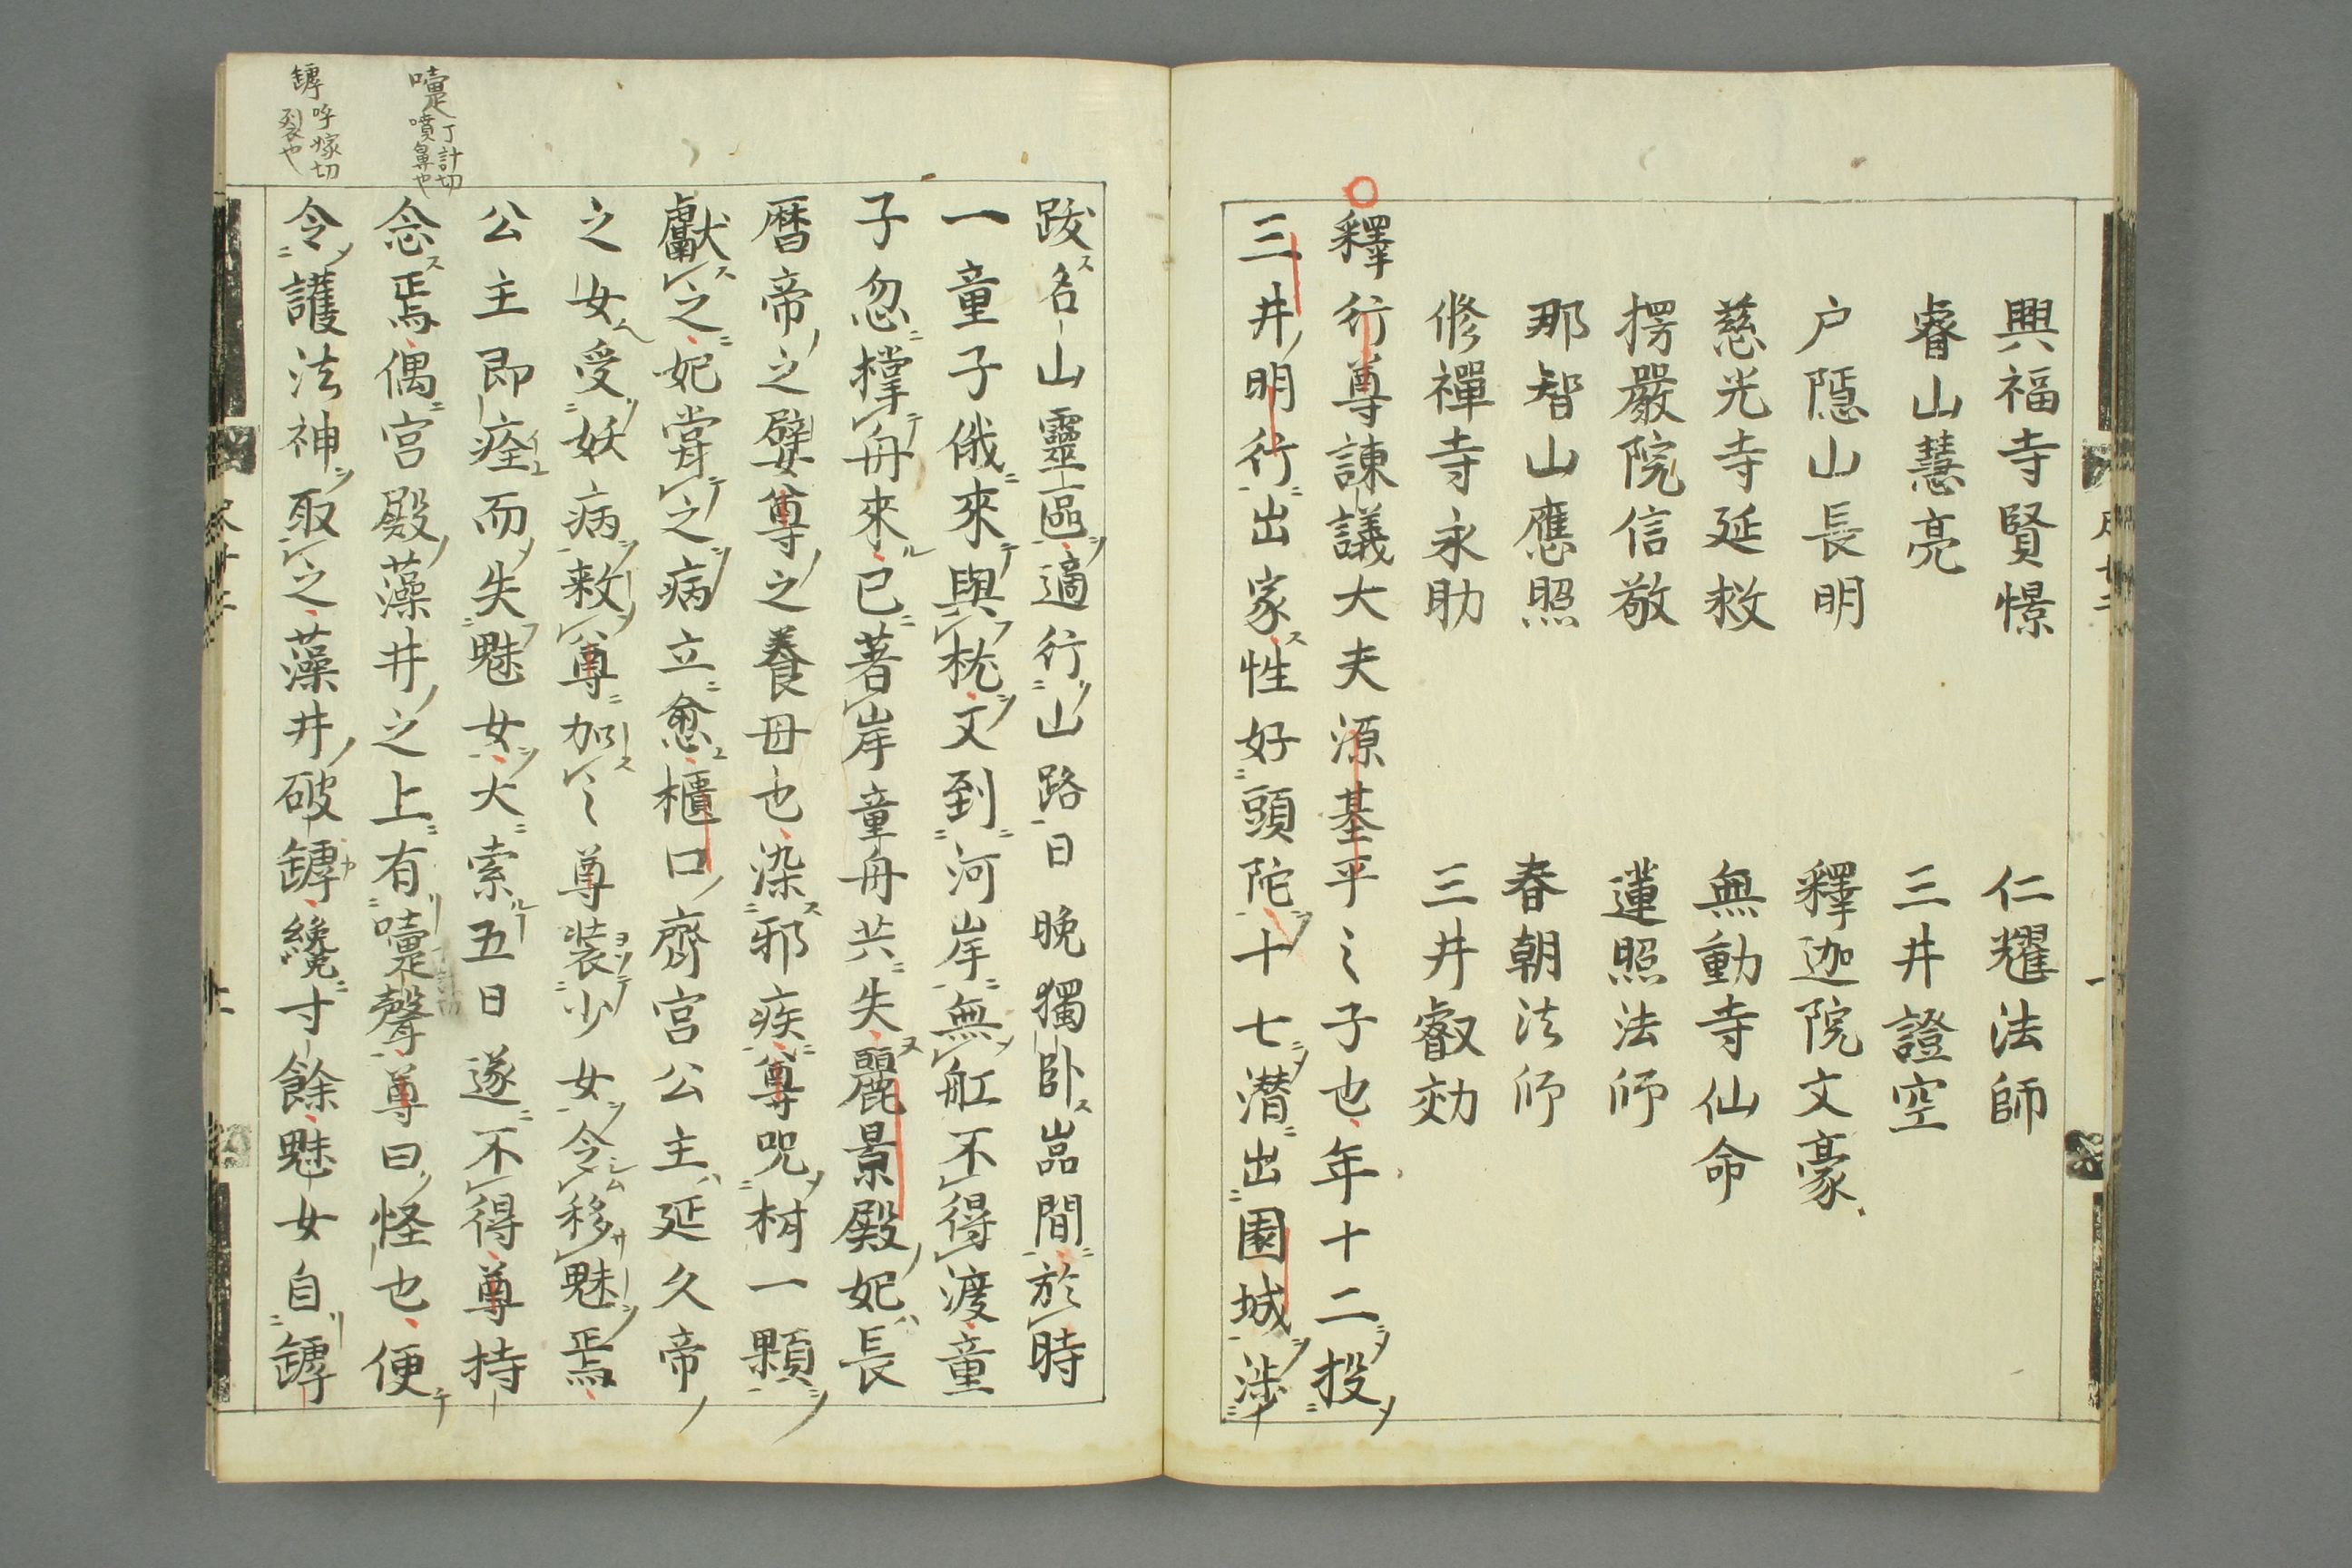 興福寺賢憬　仁耀法師
睿山慧亮　三井證空
户隱山長明　釋迦院文豪
慈光寺延救　無動寺仙命
楞嚴院信敬　蓮照法师
那智山應照　春朝法师
修禪寺永助　三井叡効
釋行尊諫議大夫源基平之子也年十二投
三井明行出家性好頭陀十七潜出園城渉
跋名山靈區適行山路日晩獨卧嵓間於時
一童子俄來與枕文到河岸無舡不得渡童
子忽撑舟來已著岸童舟共失麗景殿妃長
曆帝之嬖尊之養母也染邪疾尊咒柑一顆
獻之妃甞之病立愈櫃口齊宮公主延久帝
之女受妖病救尊加之尊装少女令移魅焉
公主即痊而失魅女大索五日遂不得尊持
念焉偶宮殿藻井之上有嚏聲尊曰怪也便
令護法神取之藻井破罅纔寸餘魅女自罅
嚏 丁計切 噴鼻也
罅 呼嫁切 裂也